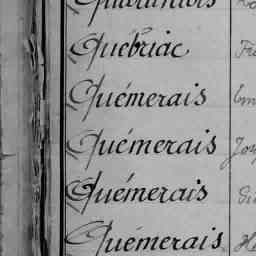 Quebriac
Quémerais Em
Quémerais Jos
Quémerais
Quémerais He